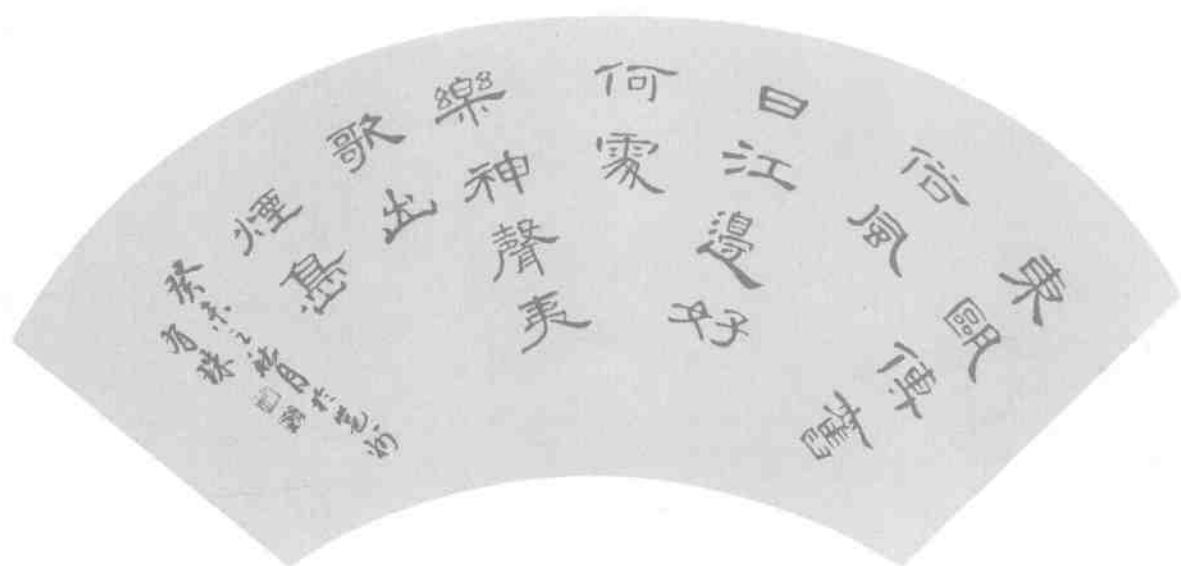 東甌傳舊
俗風
日江邊好
何處
樂神聲夷
歌出
煙島
癸未之秋月於
有珠